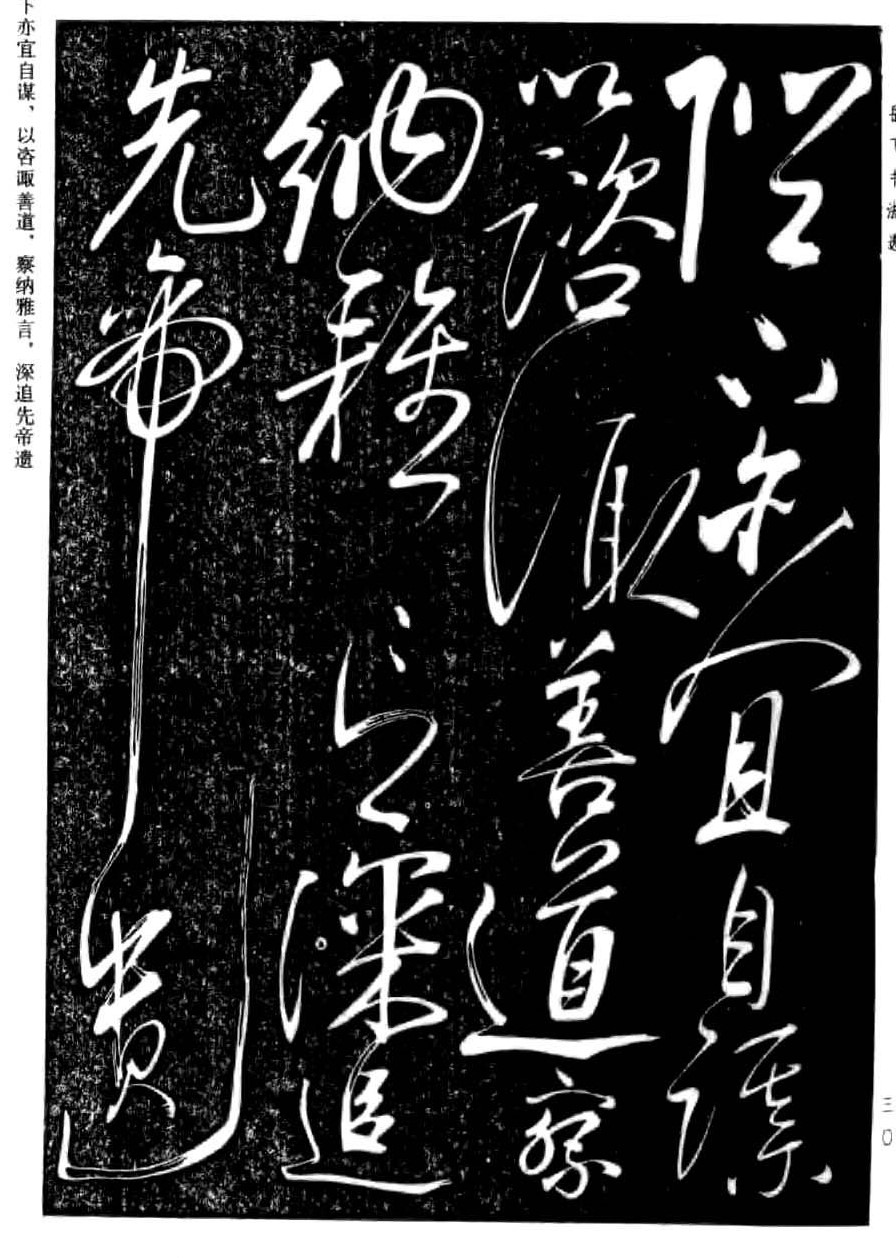 三〇
陛下亦宜自謀
以諮諏善道察
納雅言深追
先帝遺
下亦宜自谋、以咨诹善道、察纳雅言，深追先帝遗